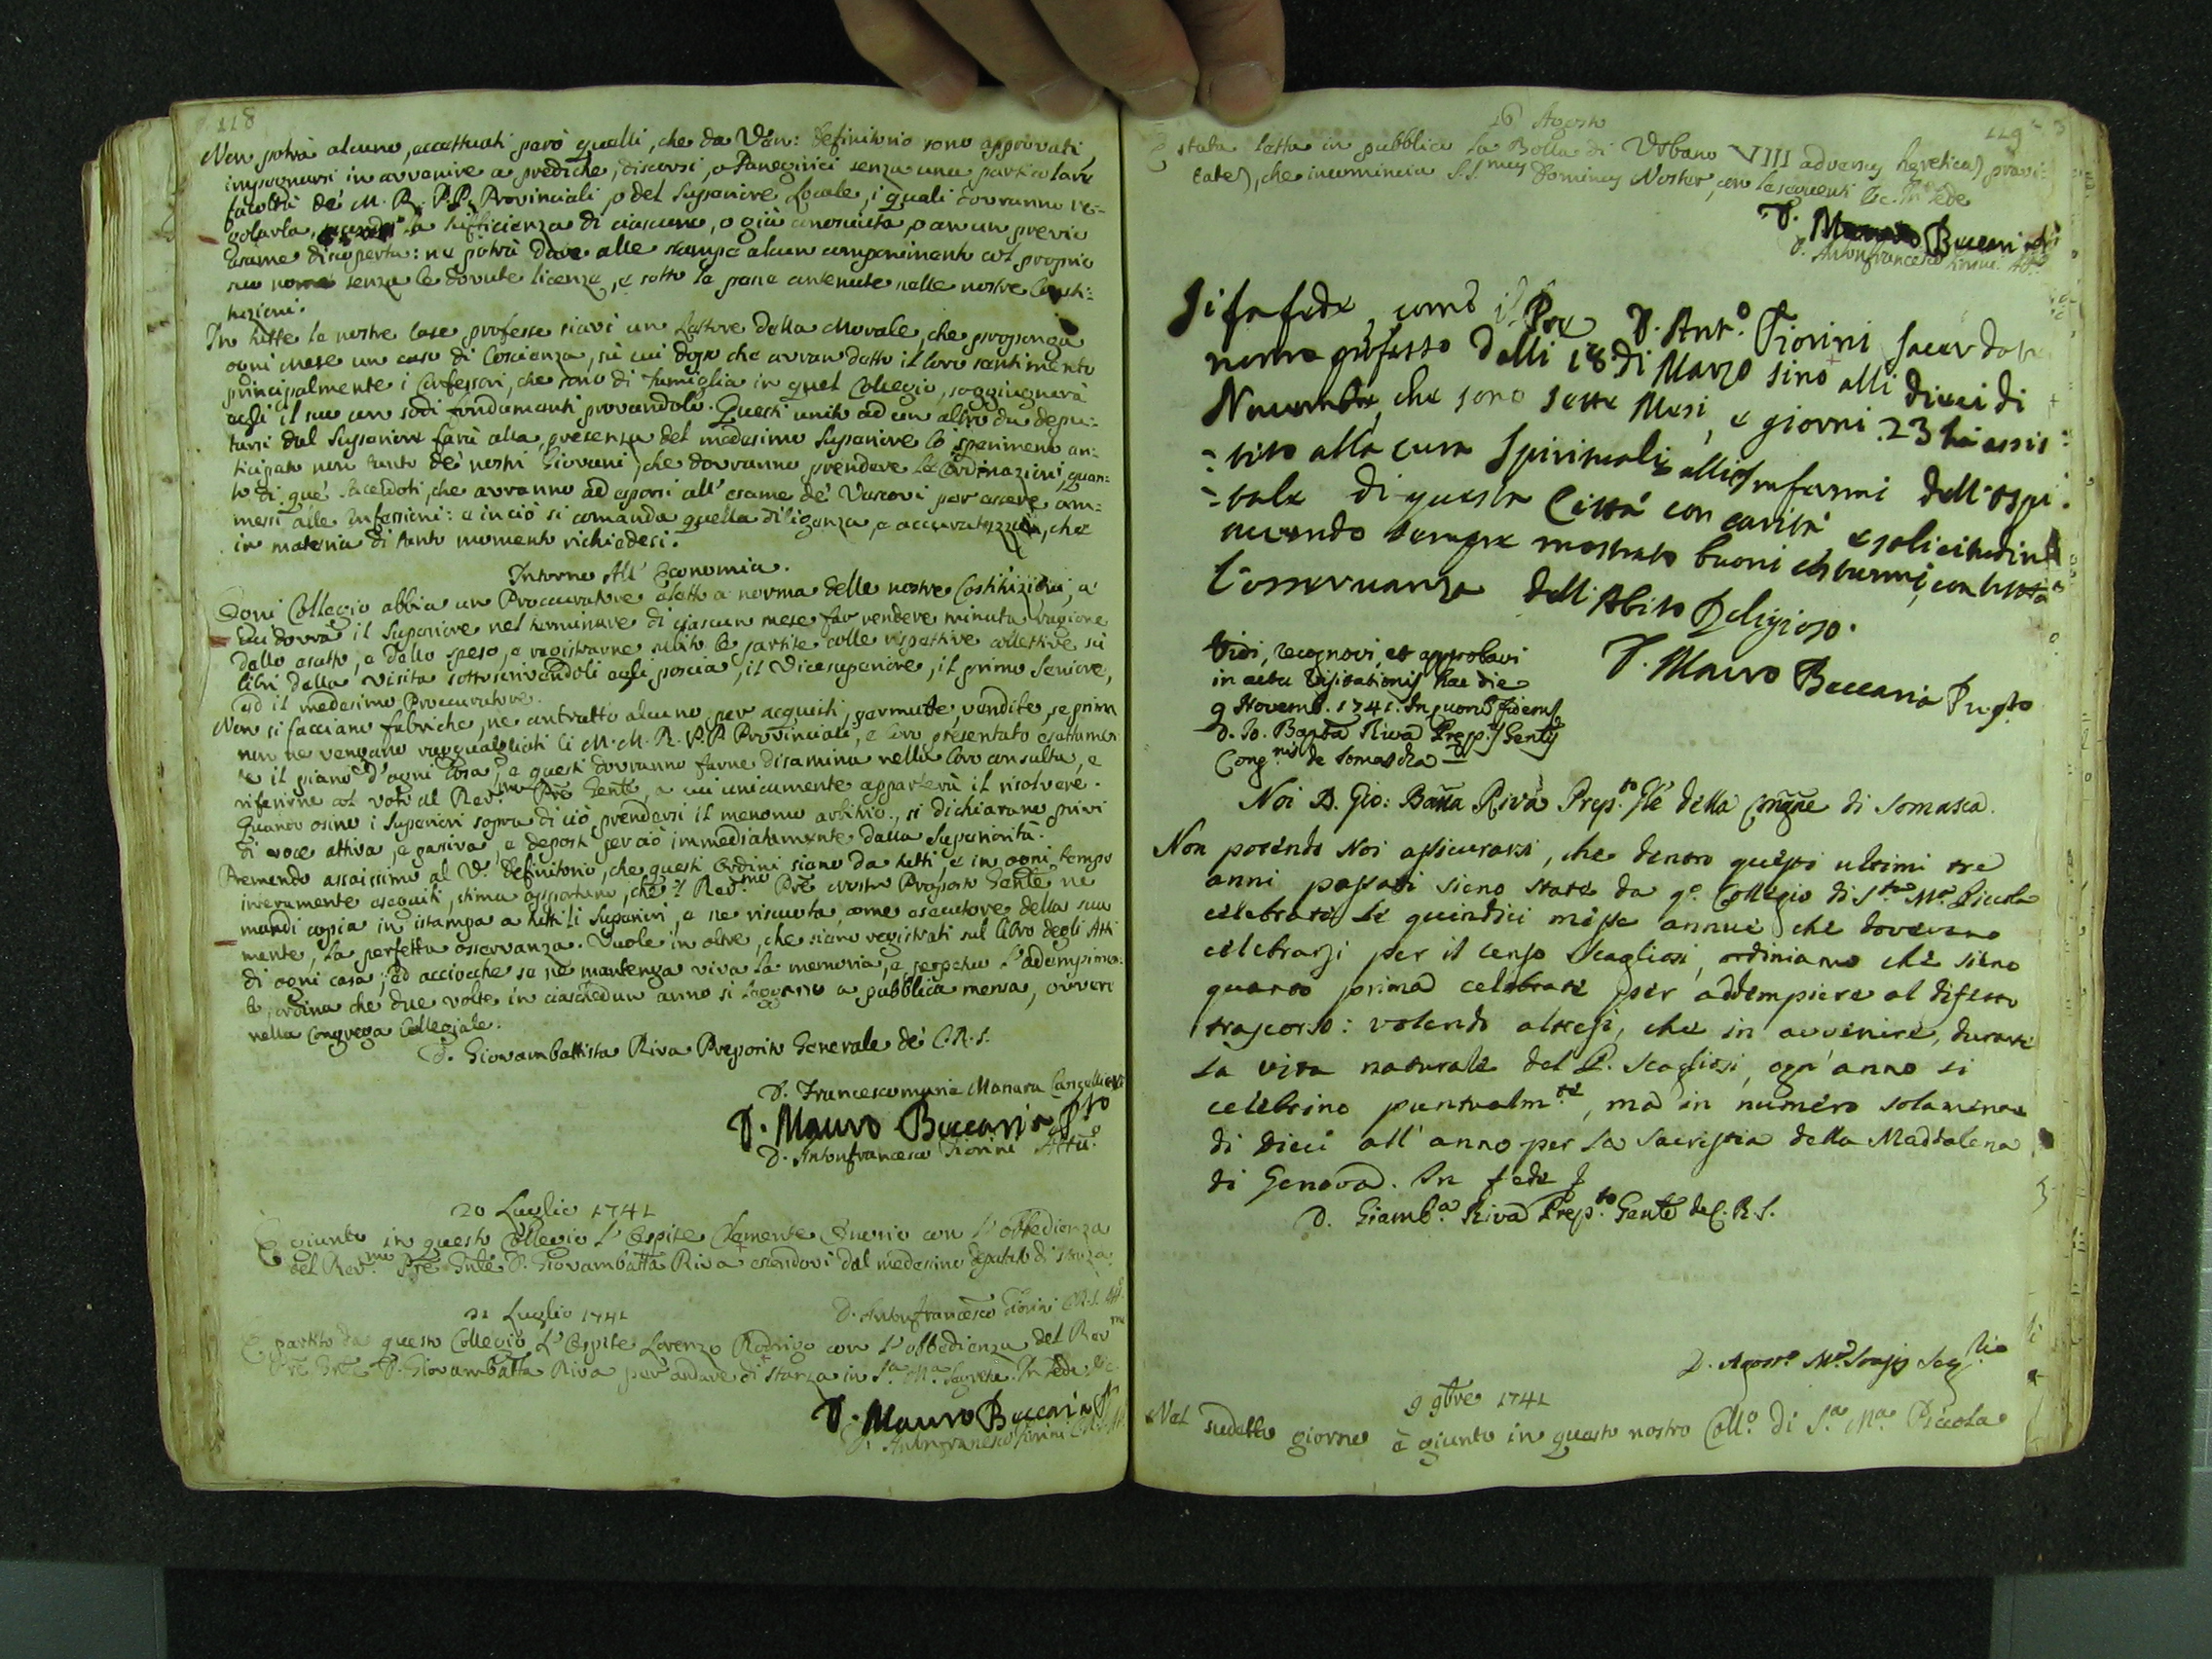 118
Non potrà alcuno, accettuati però quelli, che da Ven: Definitorio sono approvati,
impegnarsi in avvenire a prediche, discorsi, o Panegirici senza una particolare
facoltà de' M. R. P.P. Provinciali, o del Superiore Locale, i quali dovranno re-
golarla, la sufficienza di ciascuno, o già conosciuta, o con un previo
Esame discoperta: ne potrà dare alle stampe alcun componimento col proprio
suo nome senza le dovute licenze, e sotto le pene contenute nelle nostre Costi:
tuzioni.
In tutte le nostre Case professe siavi un Lettore della Morale, che proponga
ogni mese un caso di Coscienza, sù cui dopo che avran detto il loro sentimento
principalmente i Confessori, che sono di famiglia in quel Collegio, soggiugnerà
egli il suo con sodi fondamenti provandolo. Questi unito ad un altro da depu:
tarsi dal Superiore farà alla presenza del medesimo Superiore lo sperimento an:
ticipato non tanto de' nostri Giovani, che dovranno prendere le Ordinazioni, quan:
to di que' Sacerdoti, che avranno ad esporsi all' esame de' Vescovi per essere am:
messi alle Confessioni: e in ciò si comanda quella diligenza, e accuratezza, che
in materia di tanto momento richiedesi.
Intorno All' Economia.
Ogni Collegio abbia un Proccuratore eletto a norma delle nostre Costituzioni, a
cui dovrà il Superiore nel terminare di ciascun mese far rendere minuta ragione
dello esatto, e dello speso, e registrarne subito le partite colle rispettive collettive sù
libri della Visita sottoscrivendoli egli poscia, il Vicesuperiore, il primo Seniore,
ed il medesimo Proccuratore.
Non si facciano fabriche, ne contratto alcuno per acquisti, permute, vendite, se prima
non ne vengano ragguagliati li M. M. R. P. P. Provinciali, e loro presentato esattamen
te il piano d' ogni cosa, e questi dovranno farne disamina nella loro consulta, e
riferirne coi voti al Rev.mo Pre Gente, a cui unicamente apparterà il risolvere.
Quando osino i Superiori sopra di ciò prendersi il menomo arbitrio, si dichiarano privi
di voce attiva, e pasiva, e deposti per ciò immediatamente dalla Superiorità.
Premendo assaissimo al V. Definitorio, che questi Ordini siano da tutti, e in ogni tempo
interamente eseguiti, stima opportuno, che 'l Rev.mo Pre nostro Preposto Gente ne
mandi copia in istampa a tutti li Superiori, e ne riscuota, come esecutore della sua
mente, la perfetta osservanza. Vuole in oltre, che siano registrati sul libro degli Atti
di ogni casa; ed acciocche se ne mantenga viva la memoria, e perpetuo l' adempimen:
to, ordina che due volte in ciaschedun anno si leggano a pubblica mensa, ovvero
nella Congrega Collegiale.
D. Giovambattista Riva Preposito Generale de' C.R.S.
D. Francescomaria Manara Cancelliere
D. Mauro Beccaria Pto
D. Antonfrancesco Fiorini Attu.o
20 Luglio 1741
È giunto in questo Collegio l' Ospite Clemente con l' obbedienza
del Rev.mo Pre Gnle D. Giovambatta Riva essendovi dal medesimo deputato di stanza.
D. Antonfrancesco Fiorini C.R.S. Att.
21 Luglio 1741
È partito da questo Collegio l' Ospite Lorenzo Rodrigo con l' obbedienza del Rev.mo
Pre Gnle D. Giovambatta Riva per andare di stanza in S.a M.a Segreta. In fede &c.
D. Mauro Beccaria P
D. Antonfrancesco Fiorini
119
16 Agosto
È stata letta in pubblico la Bolla di Urbano VIII adversus hereticas pravi:
tates, che incomincia S.S.mus Dominus Noster, con le seguenti &c. In fede
D. Mauro Beccari
D. Antonfrancesco Fiorini Att.o
Si fa fede, come il Pre D. Ant.o Fiorini sacerdote
nostro professo dalli 18 di Marzo sino alli dieci di
Novembre, che sono sette Mesi, e giorni 23 hà assis:
:tito alla cura Spirituale alli Infermi dell' Ospi:
:tale di questa Città con carità e solicitudine
avendo sempre mostrato buoni costumi, con tutta
l'osservanza dell' Abito Religioso.
D. Mauro Beccaria Preps.to
Vidi, recognovi, et approbavi
in actu Visitationis hac die
9 Novemb. 1741. In quorum fidem
D. Io. Bapta Riva Prep.s Gen.lis
Cong.nis de Somascha
Noi D. Gio: Batta Riva Prep.to Gle della Congne di Somasca.
Non potendo Noi assicurarsi, che dentro questi ultimi tre
anni passati sieno state da q.o Collegio di S.ta M.a Piccola
celebrate le quindici messe annue, che dovevano
celebrarsi per il censo Scagliosi, ordiniamo che sieno
quanto prima celebrate per addempiere al difetto
trascorso: volendo altresi, che in avvenire, durante
la vita naturale del P. Scagliosi, ogn' anno si
celebrino puntualm.te, ma in numero solamente
di dieci all' anno per la Sacristia della Maddalena
di Genova. In fede &
D. Giamb.a Riva Prep.to Genle de C. R. S.
D. Agost.o M.a Seg.rio
9 9bre 1741
Nel sudetto giorno è giunto in questo nostro Coll.o di S.a M.a Piccola